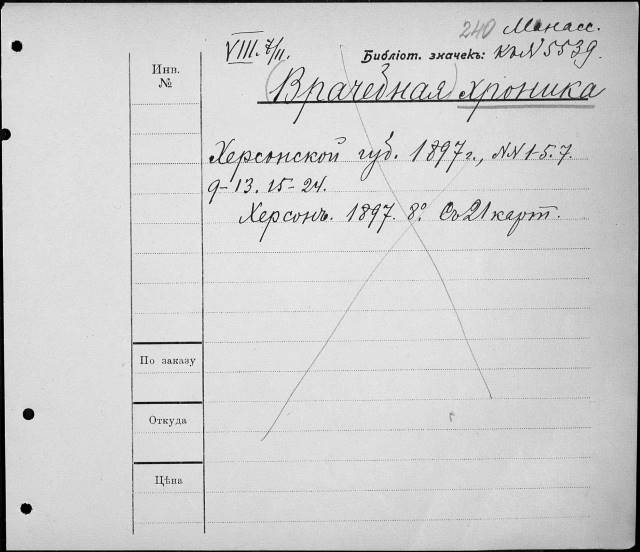 240 Манасс.
VIII. 7/II. Библіот. значекъ: къ N 5539.
Инв. №
(Врачебная) хроника
Херсонской губ. 1897 г., NN 1-5. 7.
9-13. 15-24.
Херсонъ. 1897. 8º. Съ 21 карт.
По заказу
Откуда
Цѣна